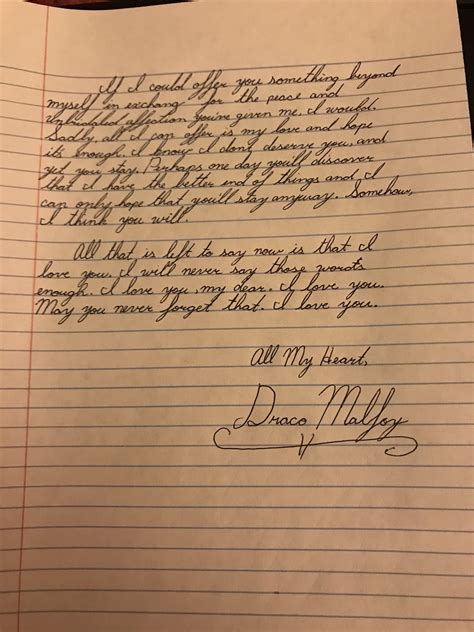 If I could offer you something beyond
myself in exchang for the peace and
unbridled affection you've given me, I would.
Sadly, all I can offer is my love and hope
it's enough. I know I don't deserve you, and
yet you stay. Perhaps one day you'll discover
that I have the better end of things and I
can only hope that you'll stay anyway. Somehow,
I think you will.
All that is left to say now is that I
love you. I will never say those words
enough. I love you, my dear. I love you.
May you never forget that. I love you.
All My Heart,
Draco Malfoy